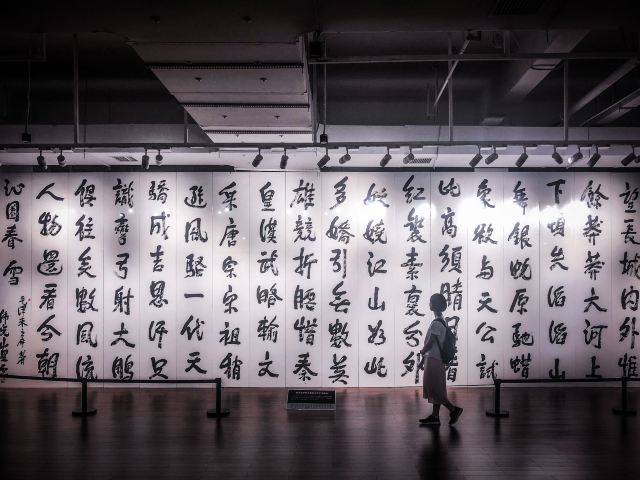 望長城内外惟
餘莽莽大河上
下頓失滔滔山
舞銀蛇原馳蠟
象欲与天公試
比高須晴
紅裝素裹分外
妖嬈江山如此
多嬌引無數英
雄競折腰惜秦
皇漢武略輸文
采唐宗宋祖稍
遜風騷一代天
驕成吉思汗只
識彎弓射大鵰
俱往矣數風流
人物還看今朝
沁園春 雪